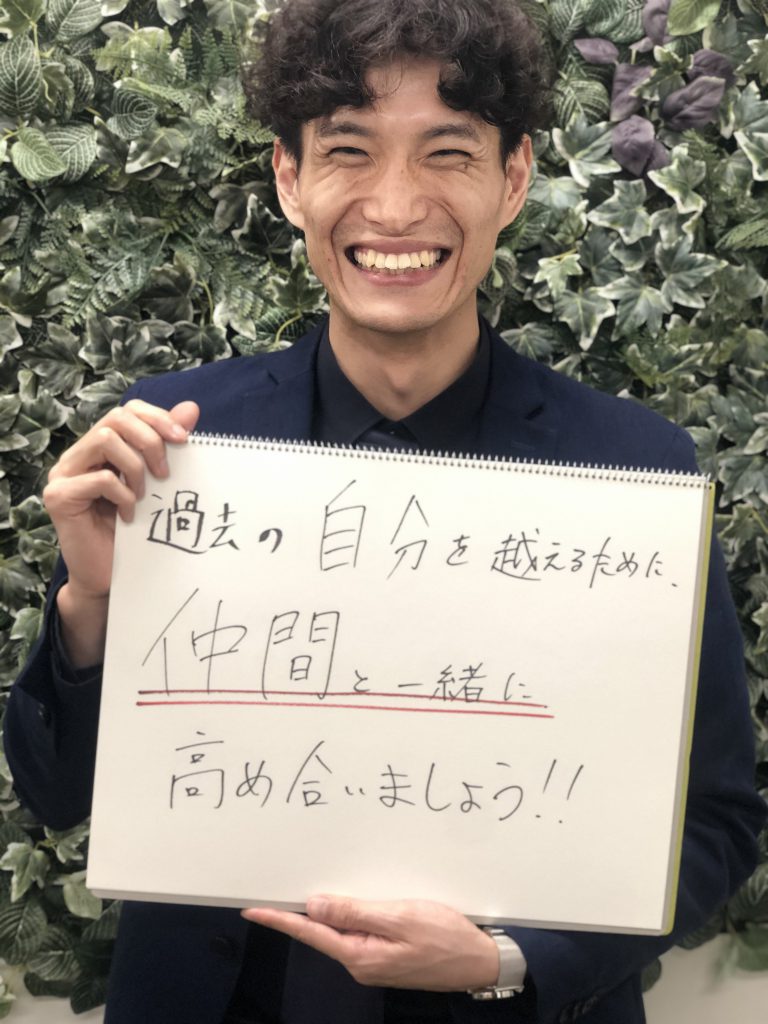 過去の自分を越えるために、
仲間と一緒に
高め合いましょう!!